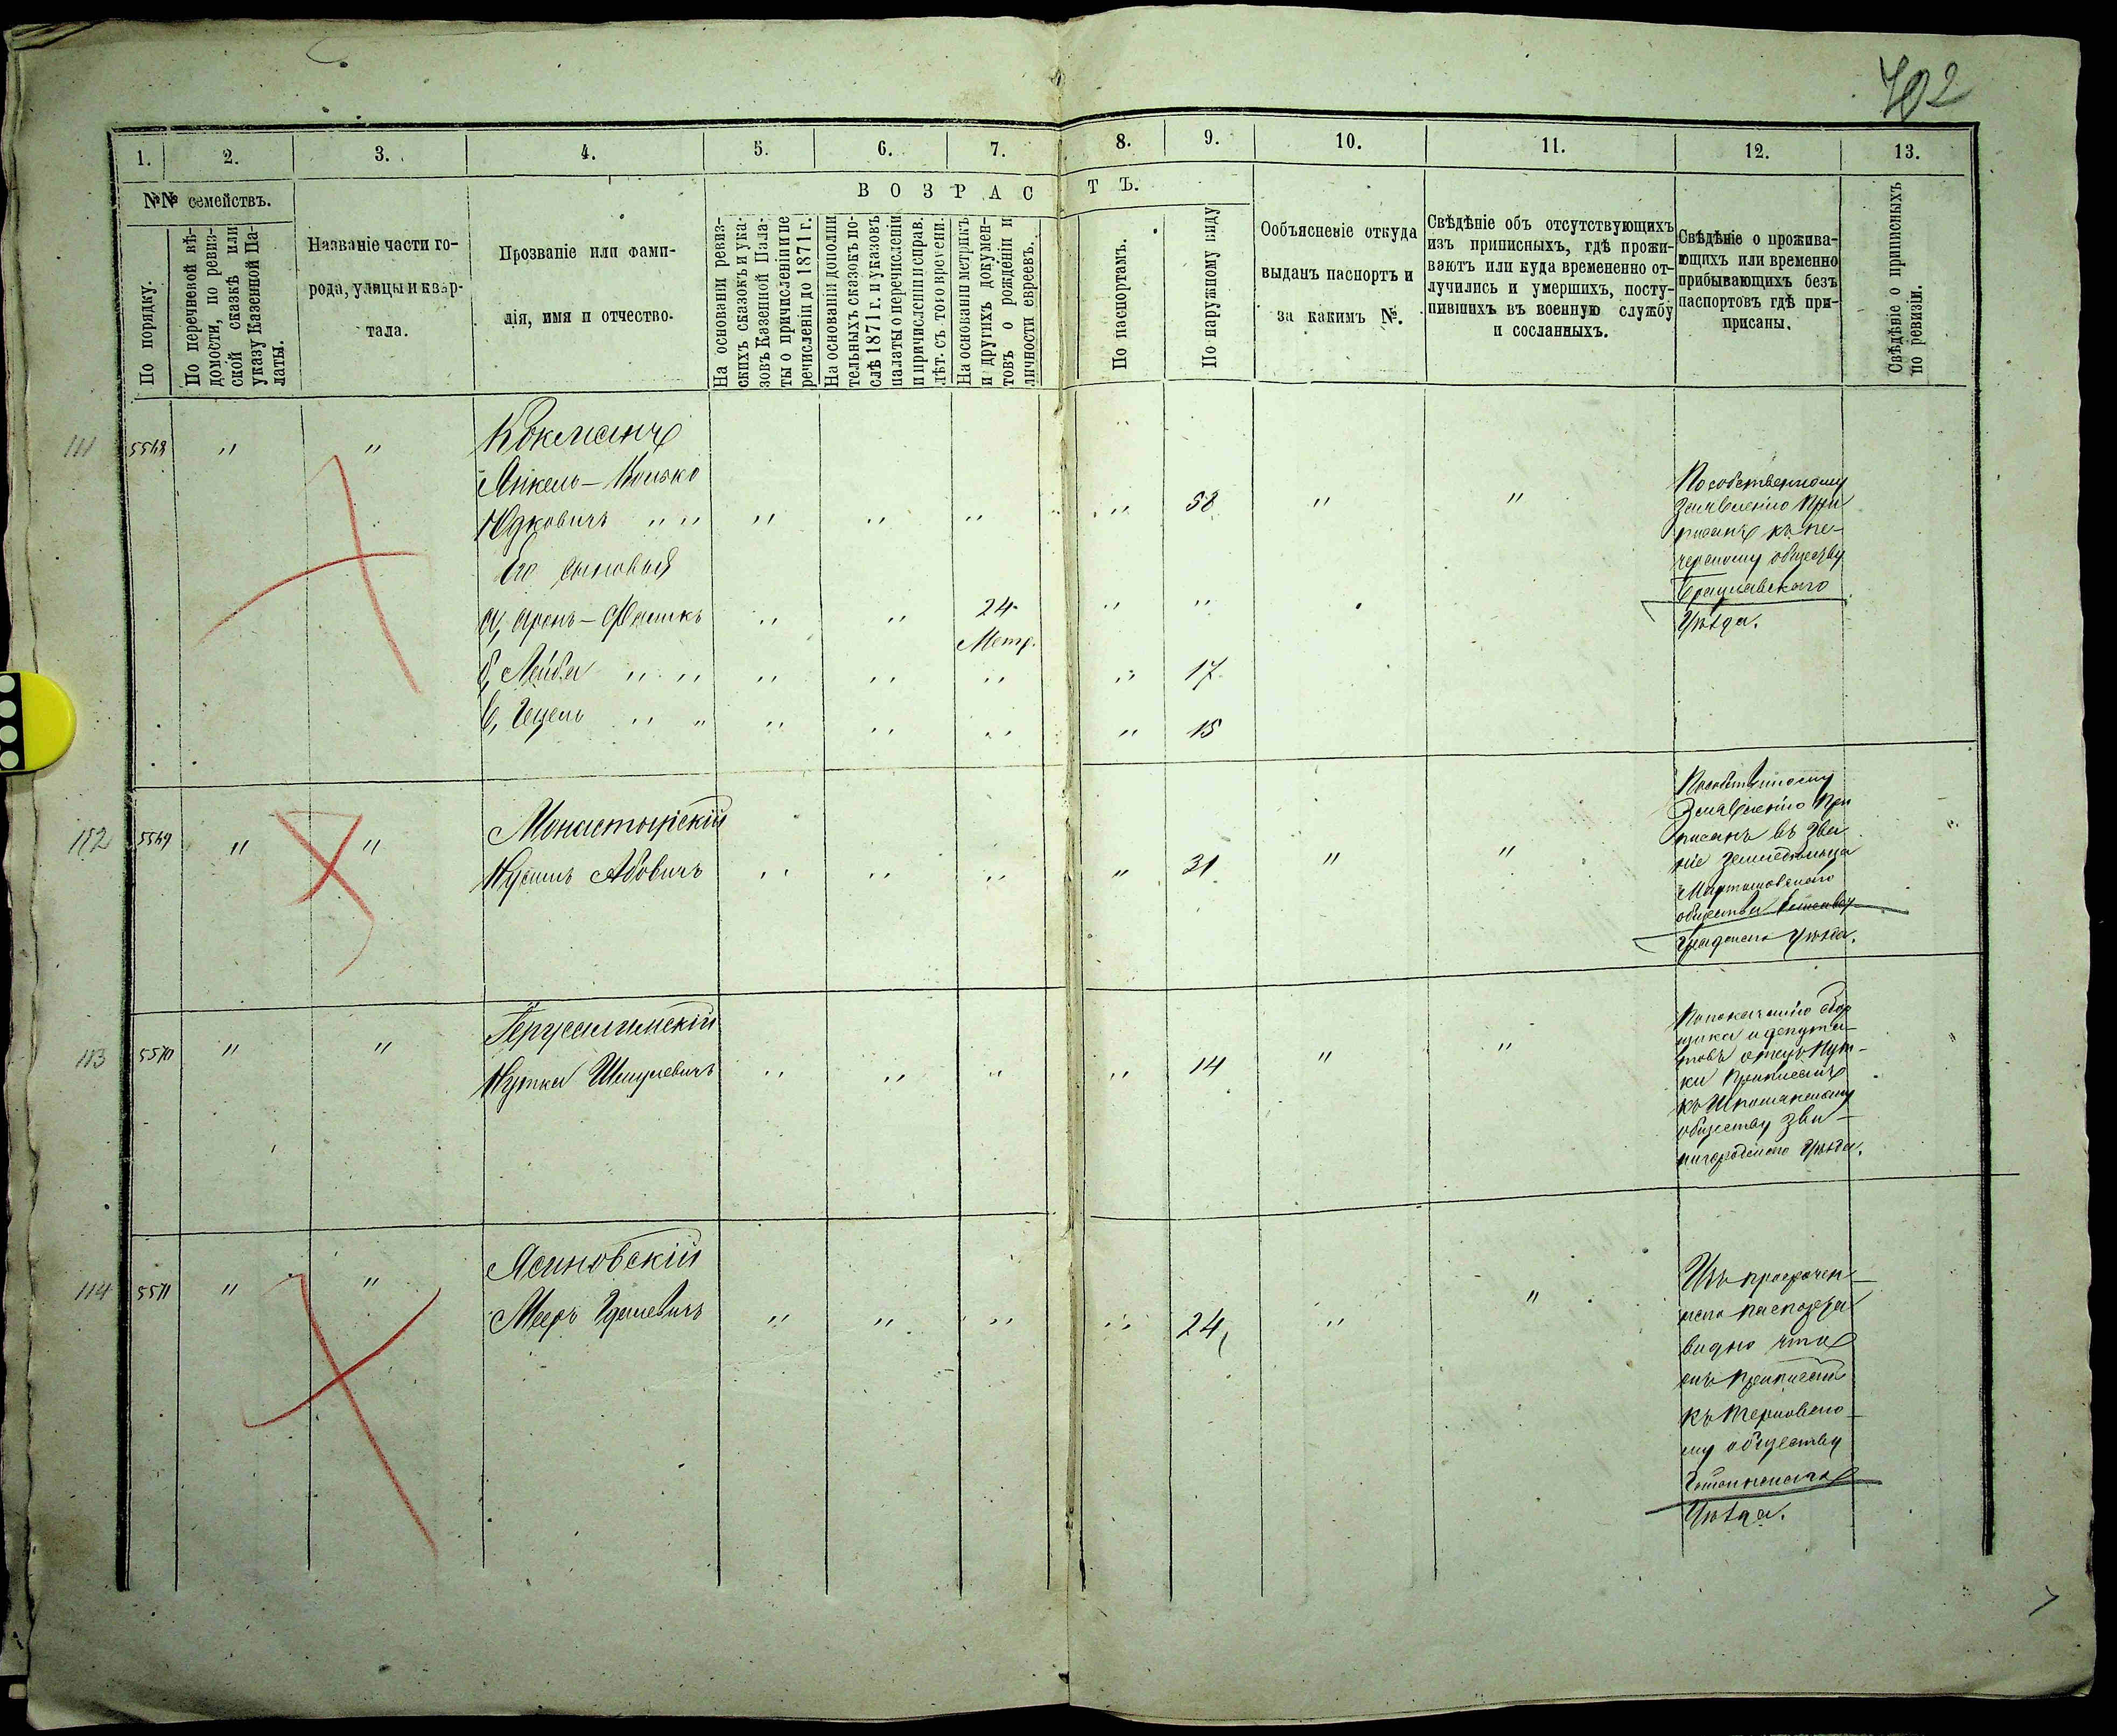 702
1.
2.
3.
4.
5.
6.
7.
8.
9.
10.
11.
12.
13.
№№ семействъ.
По порядку.
По перечневой вѣ-
домости, по ревиз-
ской сказкѣ или
указу Казенной Па-
латы.
Названіе части го-
рода, улицы и квар-
тала.
Прозваніе или фами-
лія, имя и отчество.
ВОЗРАСТЪ.
На основаніи ревиз-
скихъ сказокъ и ука-
зовъ Казенной Пала-
ты о причисленіи и пе
речисленіи до 1871 г.
На основаніи дополни
тельныхъ сказокъ по-
слѣ 1871 г. и указовъ
палаты о перечисленіи
и причисленіи и справ.
лѣт. съ того времени.
На основаніи метрикъ
и другихъ докумен-
товъ о рожденіи и
личности евреевъ.
По паспортамъ.
По наружному виду
Ообъясненіе откуда
выданъ паспортъ и
за какимъ №.
Свѣдѣніе объ отсутствующихъ
изъ приписныхъ, гдѣ прожи-
ваютъ или куда времененно от-
лучились и умершихъ, посту-
пившихъ въ военную службу
и сосланныхъ.
Свѣдѣніе о прожива-
ющихъ или временно
прибывающихъ безъ
паспортовъ гдѣ при-
присаны.
Свѣдѣніе о приписныхъ
по ревизіи.
111 5568 " "
Янкель-
Юдковичъ " " " " " " 58 " "
Его сыновья
а, Аронъ- " " 24 " "
Метр.
б, Лейба " " " " " " 17
в, Гецель " " " " " " 15
По собственному
заявленію при
писанъ къ пе-
черскому обществу
Брацлавского
Уѣзда.
112 5569 " "
Монастырскій
Нусинъ Абовичъ " " " " 31 " " "
заявленію при
писанъ въ зва
ніе земледѣльца
общества
Уѣзда.
113 5570 " "
Іерусалимскій
Нутка Шмулевичъ " " " " 14 " " "
По показанію сбор
щика и депута-
товъ отецъ Нут-
ки приписанъ
къ Шполянскому
обществу Зве-
нигородского Уѣзда.
114 5571 " "
Ясиновскій
Мееръ Гдалевичъ " " " " 24 " "
Изъ просрочен-
паспорта
видно что
онъ приписан
къ Терновско-
му обществу
Уѣзда.